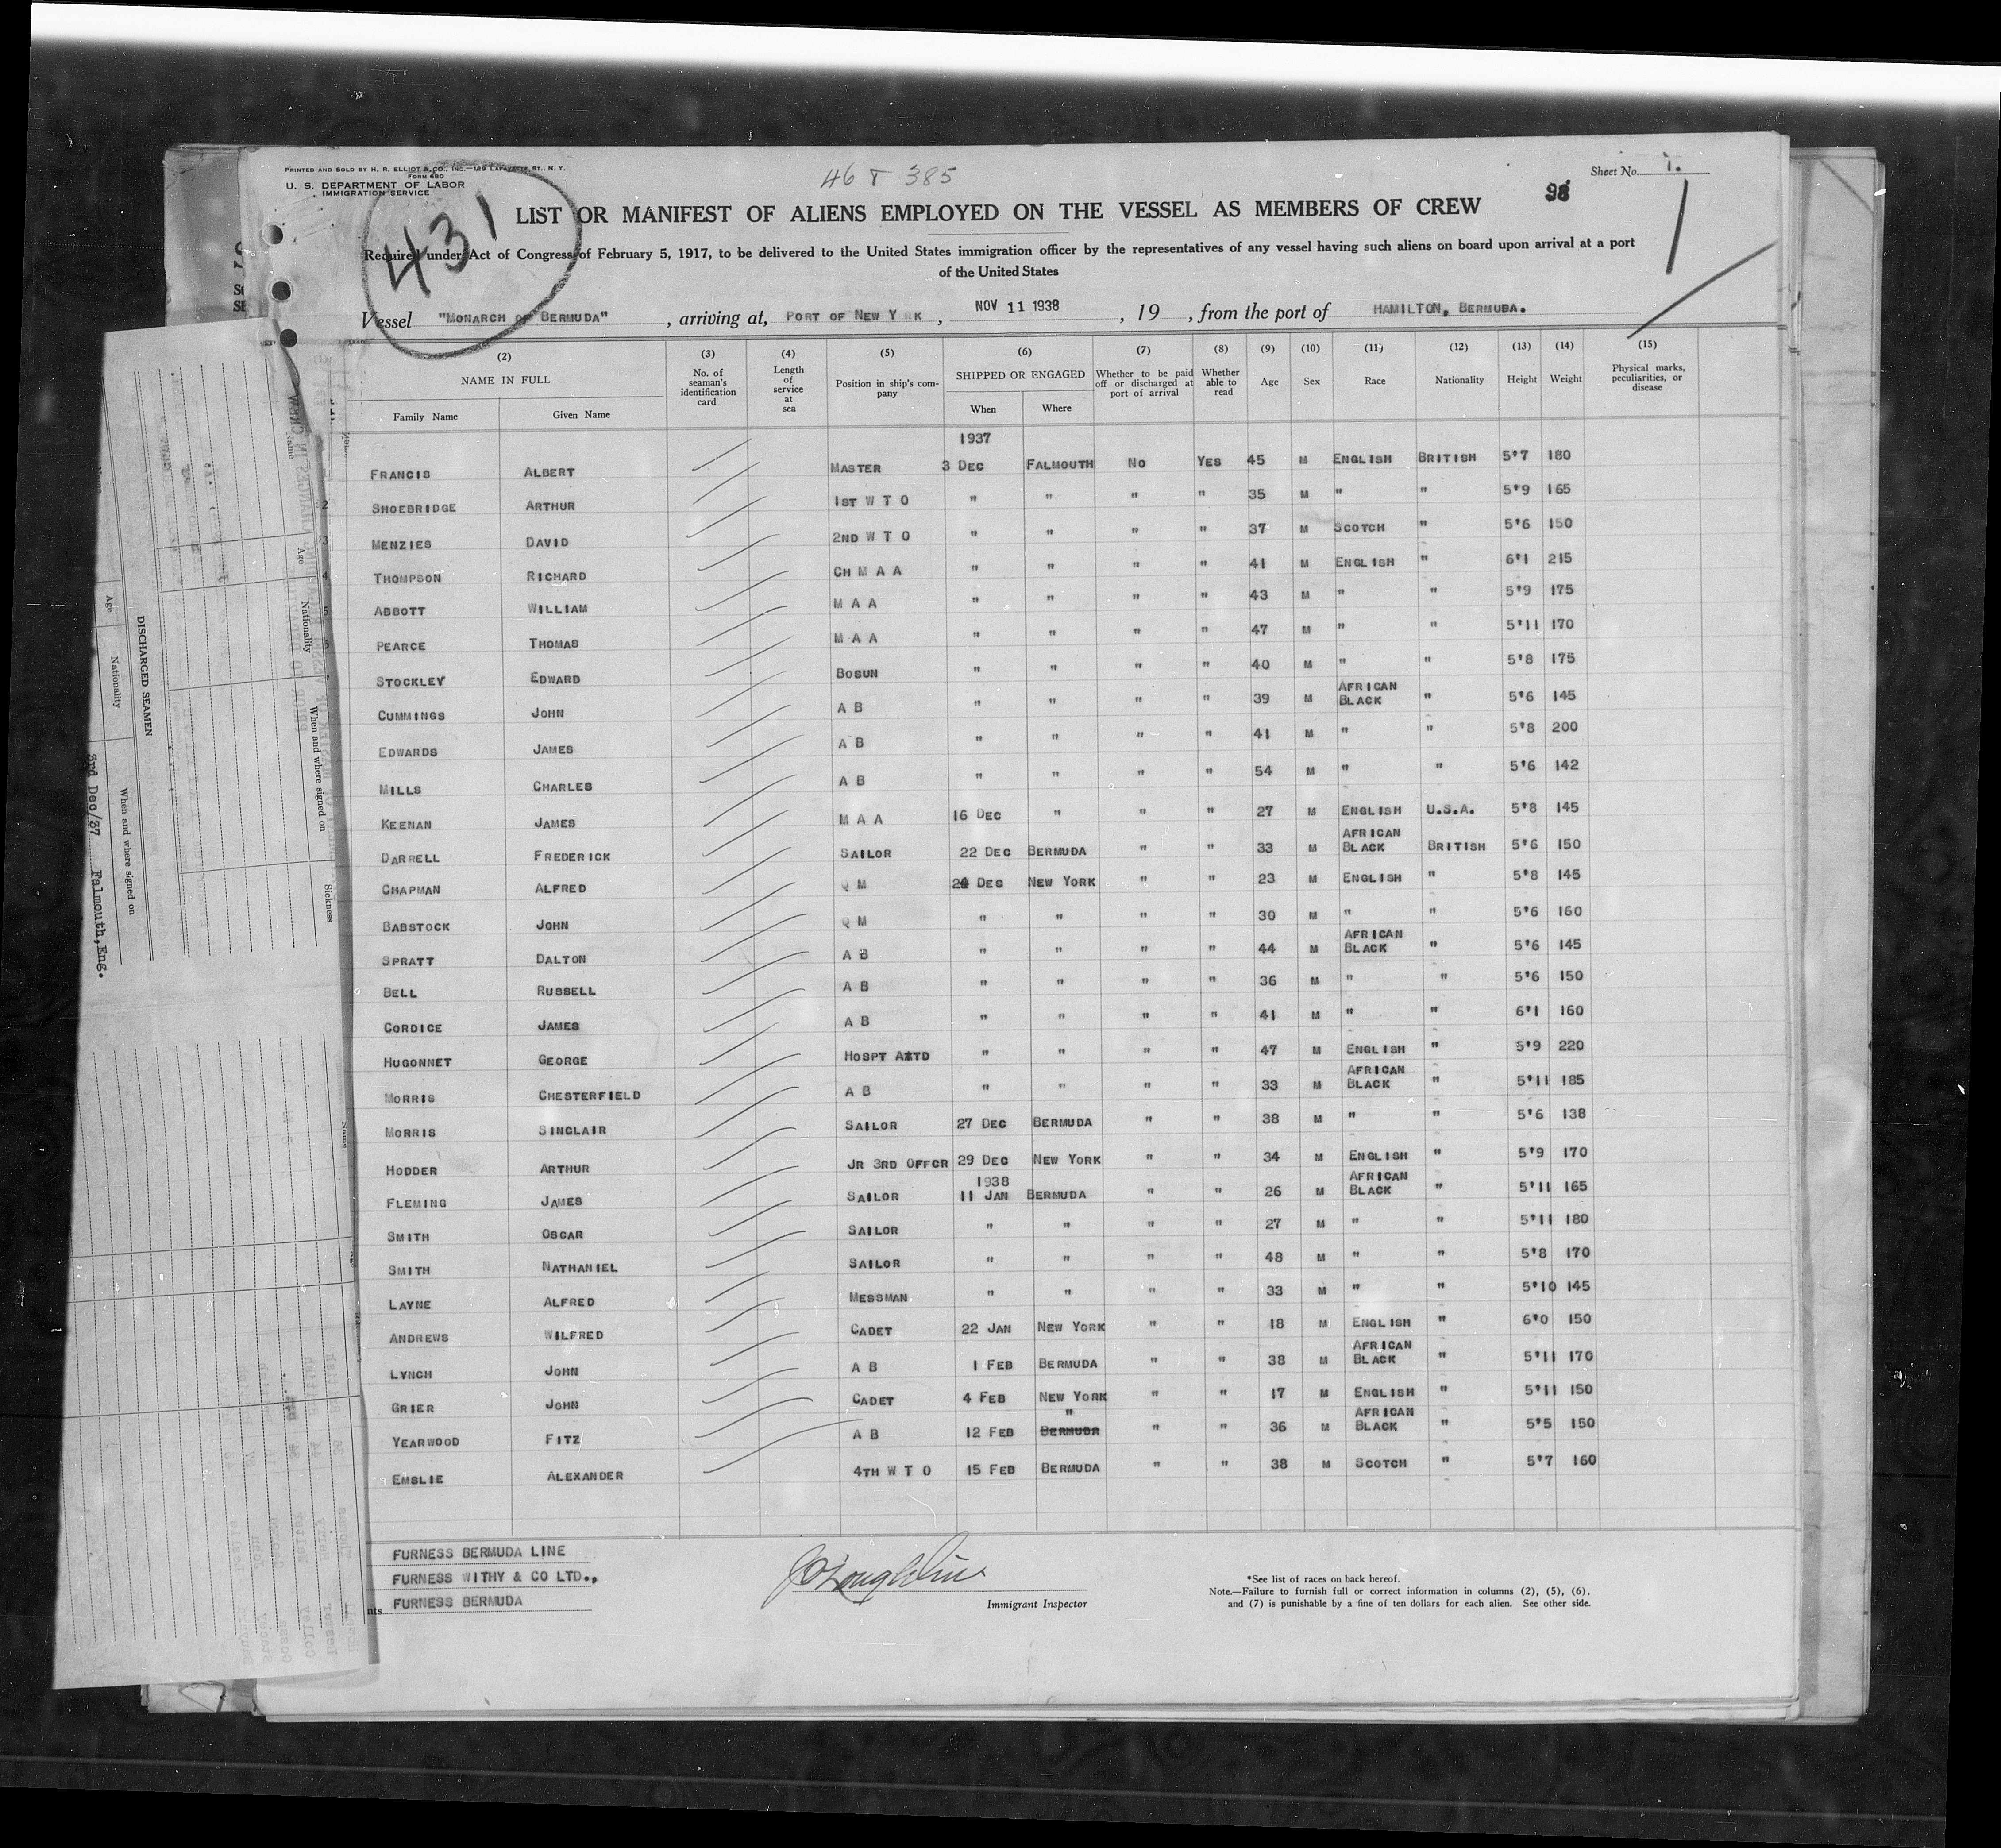 PRINTED AND SOLD BY H. R. ELLIOT & CO., INC.—189 LAFAYETTE ST., N. Y.
FORM 680
U. S. DEPARTMENT OF LABOR
IMMIGRATION SERVICE
431
46 T 385
98
Sheet No. 1.
LIST OR MANIFEST OF ALIENS EMPLOYED ON THE VESSEL AS MEMBERS OF CREW
Required under Act of Congress of February 5, 1917, to be delivered to the United States immigration officer by the representatives of any vessel having such aliens on board upon arrival at a port
of the United States
Vessel "MONARCH OF BERMUDA", arriving at, PORT OF NEW Y RK, NOV 11 1938, 19 , from the port of HAMILTON, BERMUDA.
(2) (3) (4) (5) (6) (7) (8) (9) (10) (11) (12) (13) (14) (15)
NAME IN FULL No. of seaman's identification card Length of service at sea Position in ship's company SHIPPED OR ENGAGED Whether to be paid off or discharged at port of arrival Whether able to read Age Sex Race Nationality Height Weight Physical marks, peculiarities, or disease
Family Name Given Name When Where
1937
FRANCIS ALBERT MASTER 3 DEC FALMOUTH NO YES 45 M ENGLISH BRITISH 5'7 180
2 SHOEBRIDGE ARTHUR 1ST W T O " " " " 35 M " " 5'9 165
3 MENZIES DAVID 2ND W T O " " " " 37 M SCOTCH " 5'6 150
4 THOMPSON RICHARD CH M A A " " " " 41 M ENGLISH " 6'1 215
5 ABBOTT WILLIAM M A A " " " " 43 M " " 5'9 175
6 PEARCE THOMAS M A A " " " " 47 M " " 5'11 170
STOCKLEY EDWARD BOSUN " " " " 40 M " " 5'8 175
CUMMINGS JOHN A B " " " " 39 M AFRICAN BLACK " 5'6 145
EDWARDS JAMES A B " " " " 41 M " " 5'8 200
MILLS CHARLES A B " " " " 54 M " " 5'6 142
KEENAN JAMES M A A 16 DEC " " " 27 M ENGLISH U.S.A. 5'8 145
DARRELL FREDERICK SAILOR 22 DEC BERMUDA " " 33 M AFRICAN BLACK BRITISH 5'6 150
CHAPMAN ALFRED Q M 24 DEC NEW YORK " " 23 M ENGLISH " 5'8 145
BABSTOCK JOHN Q M " " " " 30 M " " 5'6 160
SPRATT DALTON A B " " " " 44 M AFRICAN BLACK " 5'6 145
BELL RUSSELL A B " " " " 36 M " " 5'6 150
CORDICE JAMES A B " " " " 41 M " " 6'1 160
HUGONNET GEORGE HOSPT ATTD " " " " 47 M ENGLISH " 5'9 220
MORRIS CHESTERFIELD A B " " " " 33 M AFRICAN BLACK " 5'11 185
MORRIS SINCLAIR SAILOR 27 DEC BERMUDA " " 38 M " " 5'6 138
HODDER ARTHUR JR 3RD OFFCR 29 DEC NEW YORK " " 34 M ENGLISH " 5'9 170
1938
FLEMING JAMES SAILOR 11 JAN BERMUDA " " 26 M AFRICAN BLACK " 5'11 165
SMITH OSCAR SAILOR " " " " 27 M " " 5'11 180
SMITH NATHANIEL SAILOR " " " " 48 M " " 5'8 170
LAYNE ALFRED MESSMAN " " " " 33 M " " 5'10 145
ANDREWS WILFRED CADET 22 JAN NEW YORK " " 18 M ENGLISH " 6'0 150
LYNCH JOHN A B 1 FEB BERMUDA " " 38 M AFRICAN BLACK " 5'11 170
GRIER JOHN CADET 4 FEB NEW YORK " " 17 M ENGLISH " 5'11 150
YEARWOOD FITZ A B 12 FEB " BERMUDA " " 36 M AFRICAN BLACK " 5'5 150
EMSLIE ALEXANDER 4TH W T O 15 FEB BERMUDA " " 38 M SCOTCH " 5'7 160
FURNESS BERMUDA LINE
FURNESS WITHY & CO LTD.,
FURNESS BERMUDA
nts
Immigrant Inspector
*See list of races on back hereof.
Note.—Failure to furnish full or correct information in columns (2), (5), (6),
and (7) is punishable by a fine of ten dollars for each alien. See other side.
DISCHARGED SEAMEN
Age
Nationality
When and where signed on
3rd Dec/37 Falmouth, Eng.
Name
Age
Nationality
When and where signed on
Sickness